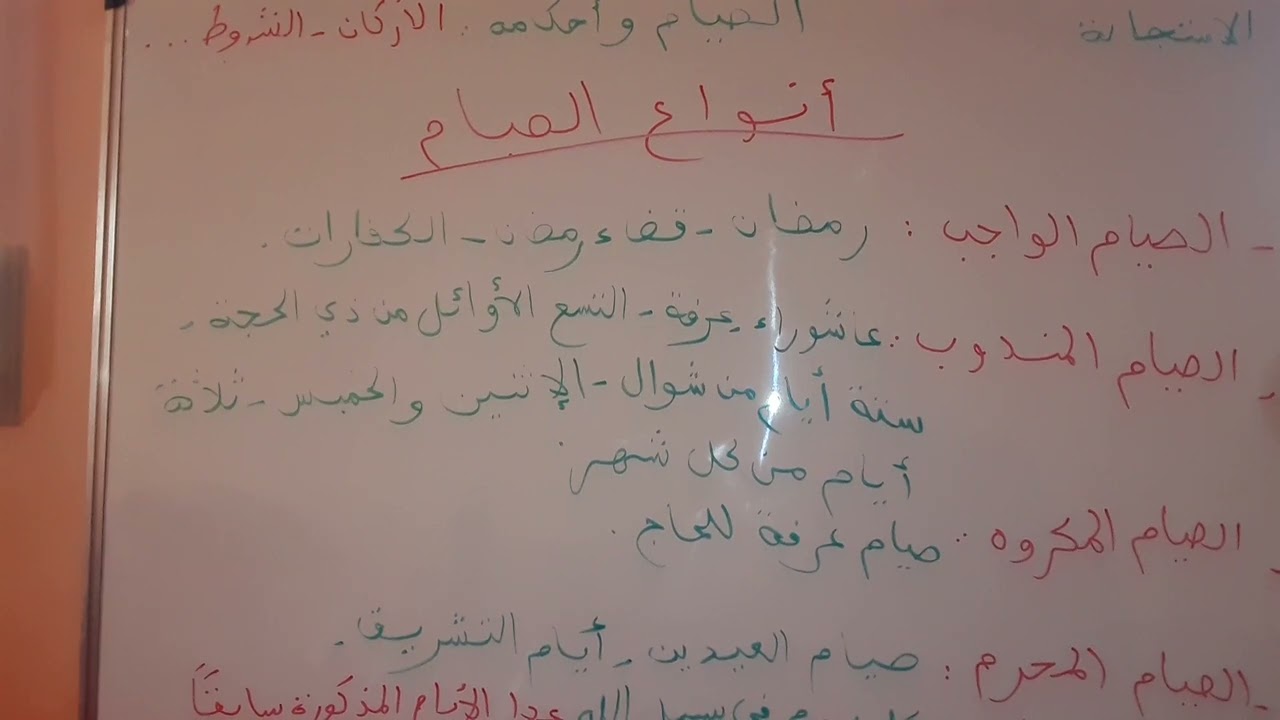 الاستجابة
الصيام وأحكامه : الأركان - الشروط ...
أنواع الصيام
- الصيام الواجب : رمضان - قضاء رمضان - الكفارات .
- الصيام المندوب : عاشوراء - عرفة - التسع الأوائل من ذي الحجة -
ستة أيام من شوال - الإثنين والخميس - ثلاثة
أيام من كل شهر
- الصيام المكروه : صيام عرفة للحاج .
- الصيام المحرم : صيام العيدين - أيام التشريق -
في سبيل الله عدا الأيام المذكورة سابقاً